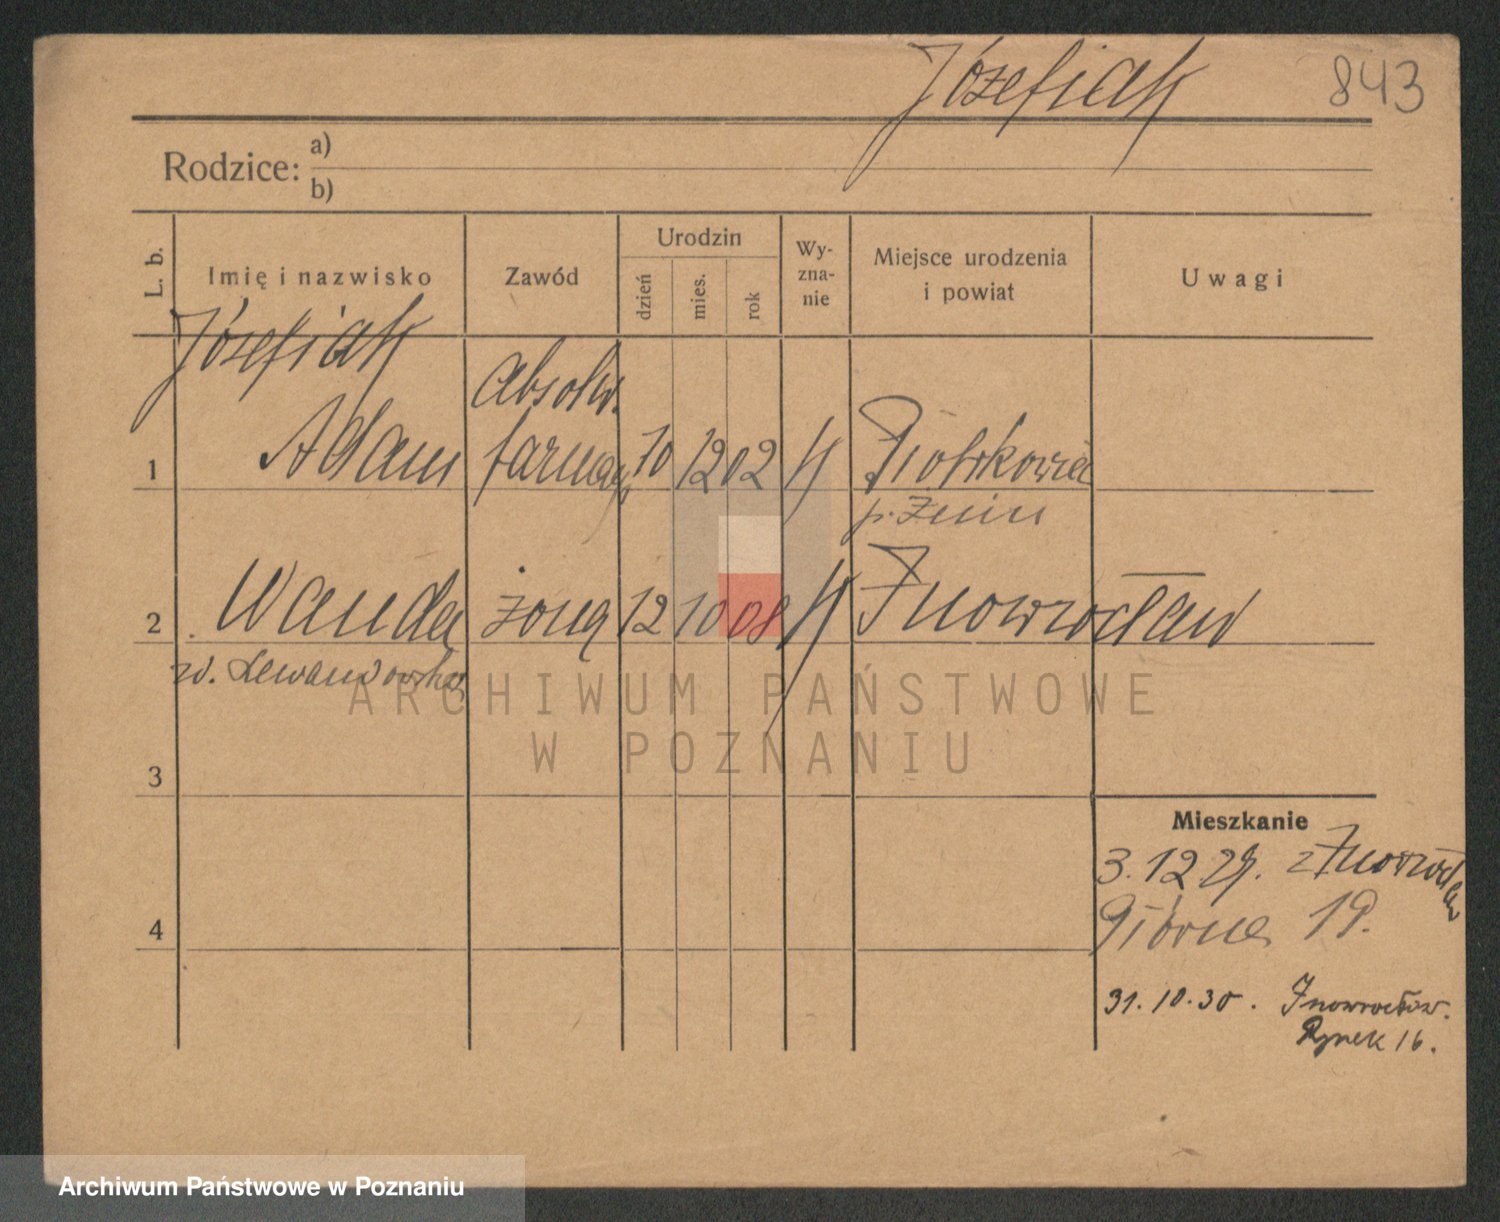 Józefiak 843
Rodzice: a)
b)
L. b.
Imię i nazwisko
Zawód
Urodzin
dzień
mies.
rok
Wy-
zna-
nie
Miejsce urodzenia
i powiat
Uwagi
Józefiak
Absolw.
1 Adam farmacji 10 12 02 K Piotrkowice
p. Żnin
2 Wanda żona 12 10 08 K Inowrocław
zd. Lewandowska
ARCHIWUM PAŃSTWOWE
W POZNANIU
3
Mieszkanie
3.12 29. z Inowrocław
4 Górna 19.
31.10.30. Inowrocław.
Rynek 16.
Archiwum Państwowe w Poznaniu